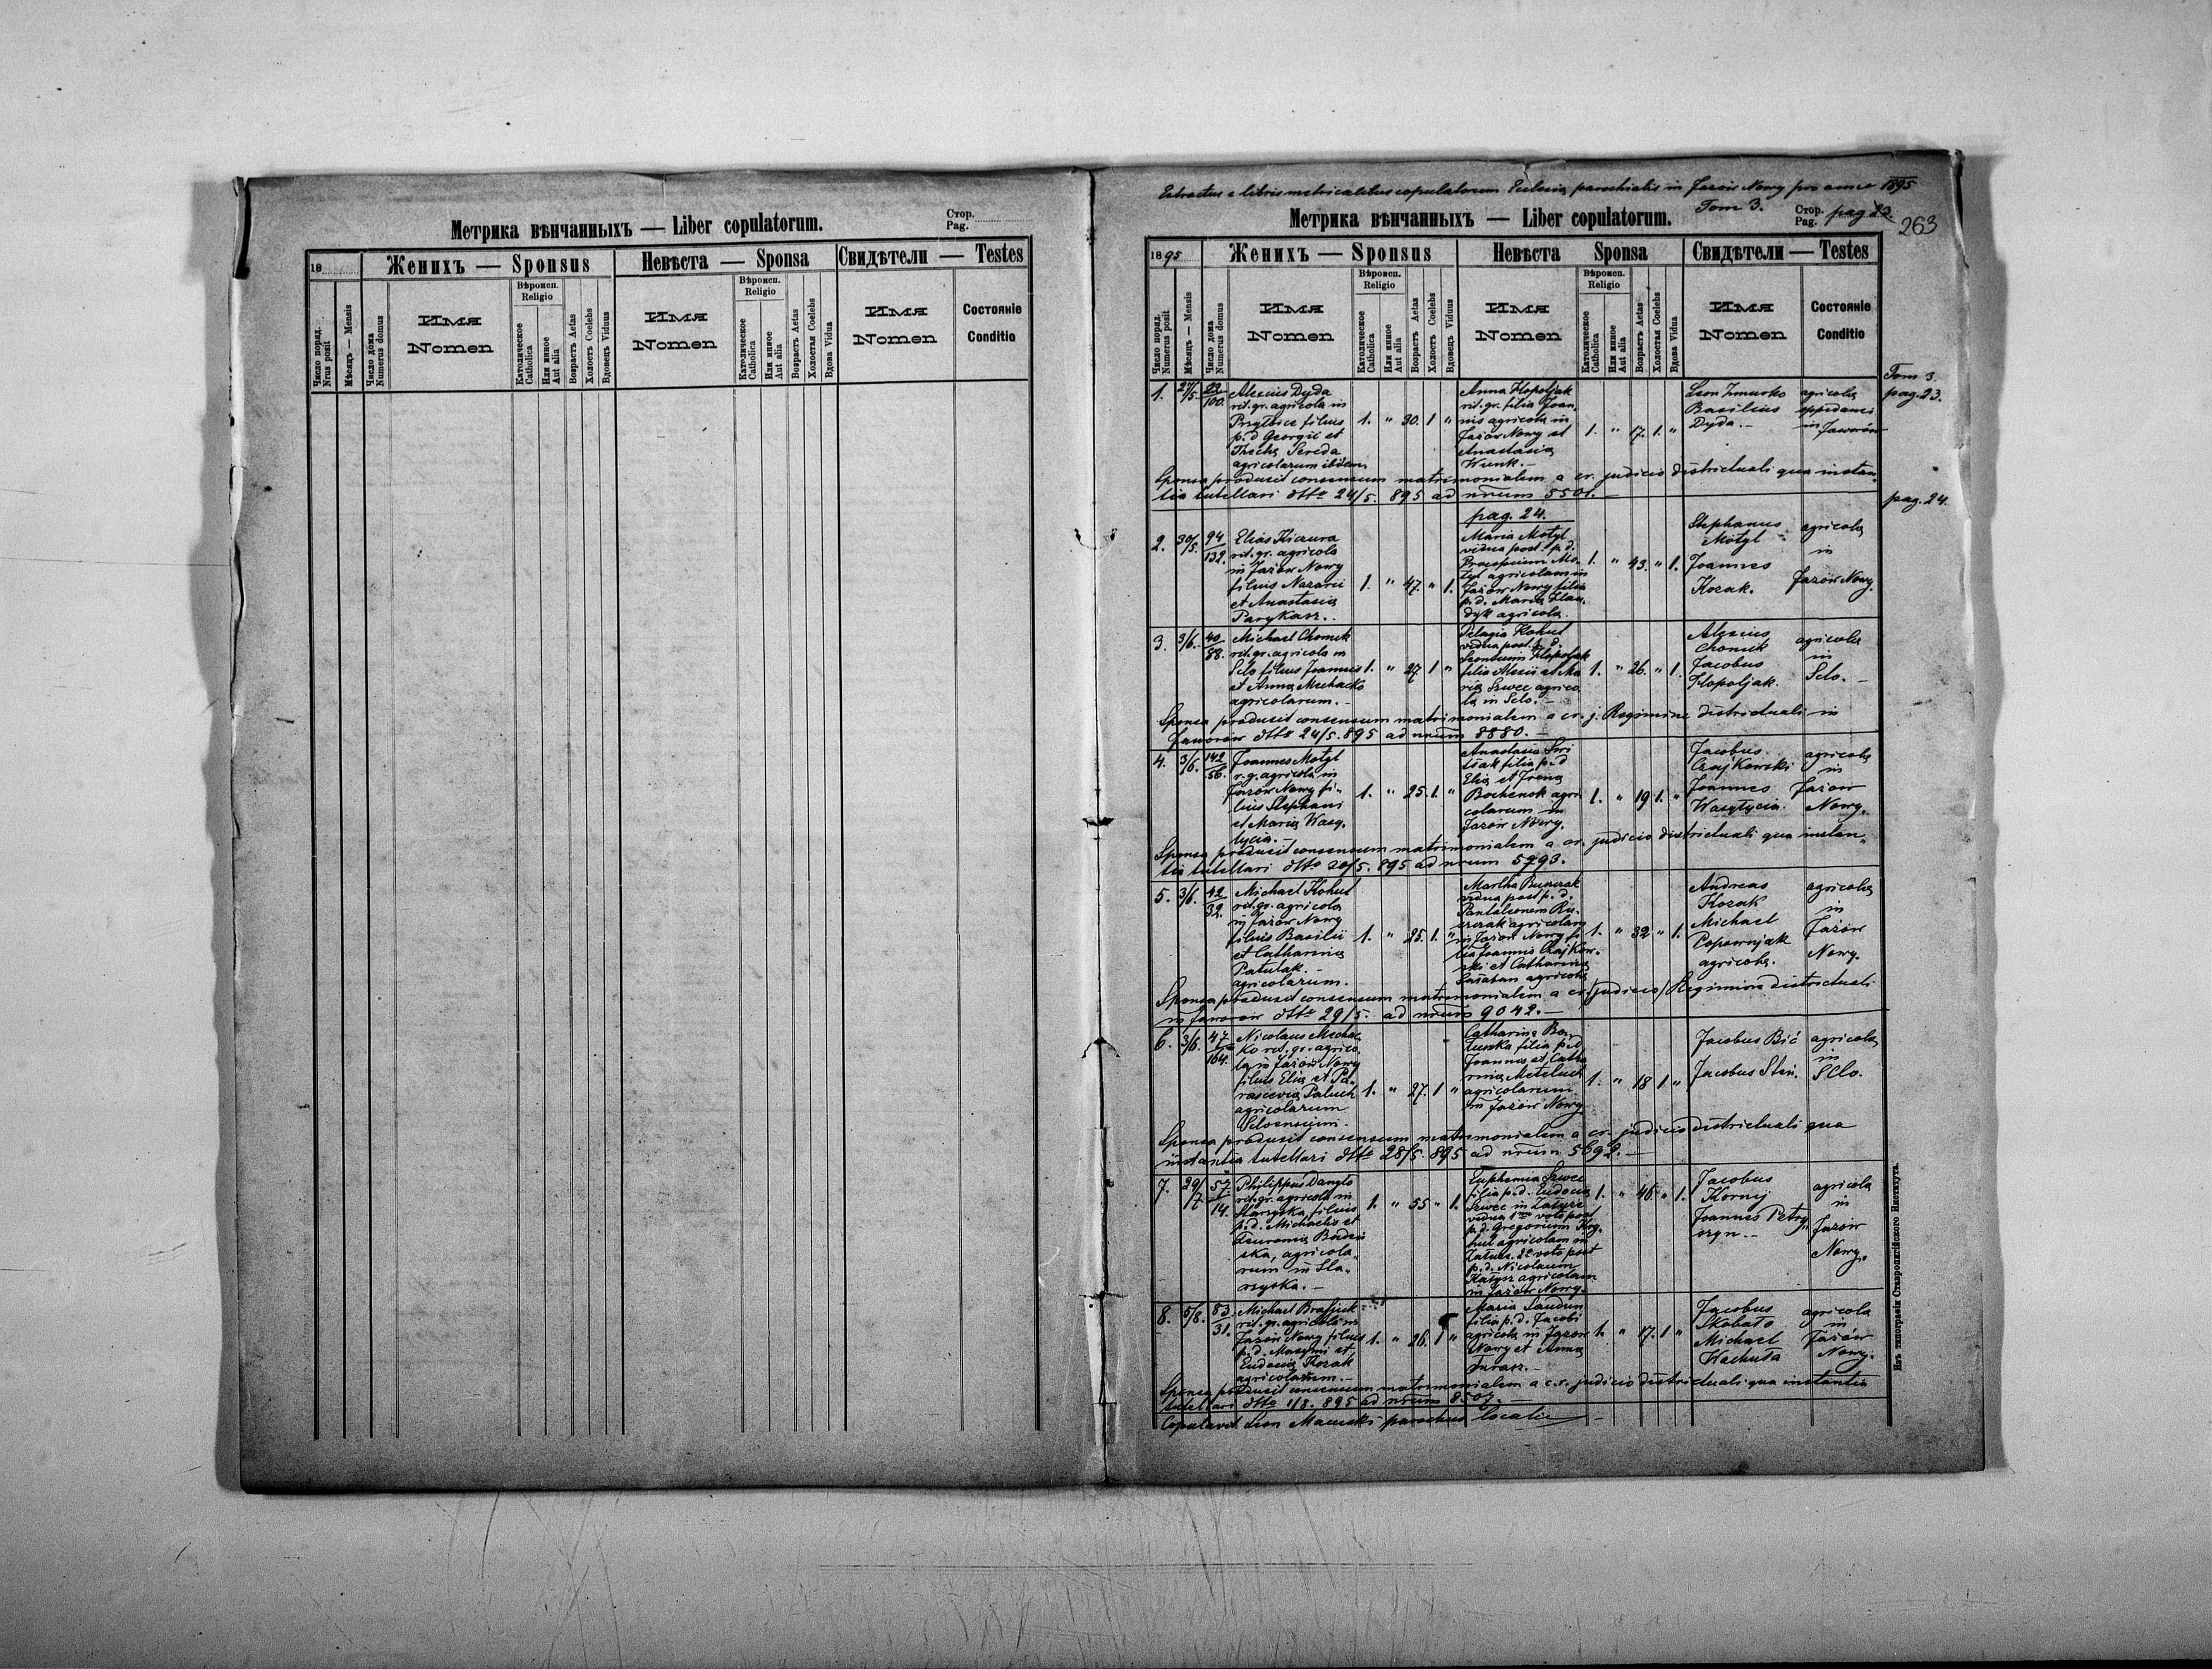 Метрика вѣнчанныхъ — Liber copulatorum.
Стор.
Pag.
18
Женихъ — Sponsus
Невѣста — Sponsa
Свидѣтели — Testes
Число поряд.
Nrus posit
Мѣсяцъ — Mensis
Число дома
Numerus domus
Имя
Nomen
Вѣроисп.
Religio
Католическое
Catholica
Или иное
Aut alia
Возрастъ Aetas
Холостъ Coelebs
Вдовецъ Viduus
Имя
Nomen
Вѣроисп.
Religio
Католическое
Catholica
Или иное
Aut alia
Возрастъ Aetas
Холостая Coelebs
Вдова Vidua
Имя
Nomen
Состоянiе
Conditio
Extractus e libris metricalibus copulatorum Ecclesiæ parochialis in Jazów Nowy pro anno 1895
Tom 3.
Метрика вѣнчанныхъ — Liber copulatorum.
Стор.
Pag. pag 23.
263
1895
Женихъ — Sponsus
Невѣста Sponsa
Свидѣтели — Testes
Число поряд.
Numerus posit
Мѣсяцъ — Mensis
Число дома
Numerus domus
Имя
Nomen
Вѣроисп.
Religio
Католическое
Catholica
Или иное
Aut alia
Возрастъ Aetas
Холостъ Coelebs
Вдовецъ Viduus
Имя
Nomen
Вѣроисп.
Religio
Католическое
Catholica
Или иное
Aut alia
Возрастъ Aetas
Холостая Coelebs
Вдова Vidua
Имя
Nomen
Состоянiе
Conditio
Tom 3.
pag. 23.
1. 27/5. 23/100.
Alexius Dyda
rit. gr. agricola in
Przyłbice filius
p. d. Georgii et
Theclæ Sereda
agricolarum ibidem
1. " 30. 1 "
Anna Hopoljak
rit. gr. filia Joan-
nis agricolæ in
Jazów Nowy et
Anastasiæ
Wunk.-
1. " 17. 1. "
Leon Zmurko
Basilius
Dyda.-
agricolæ
oppidanei
in Jaworów
Sponsa produxit consensum matrimonialem a cr. judicio districtuali qua instan-
tia tutellari dtto 24/5. 895 ad nrum 5501.-
pag. 24.
pag. 24.
2. 30/5. 94/132.
Elias Kiczura
rit. gr. agricola
in Jazów Nowy
filius Nazarii
et Anastasiæ
Parykasz.
1. " 47. " 1.
Maria Motyl
vidua post p. d.
Procopium Mo-
tyl agricolam in
Jazów Nowy filia
p. d. Mariæ
agricolæ
1. " 43. " 1.
Stephanus
Motyl
Joannes
Kozak.
agricolæ
in
Jazów Nowy.
3. 3/6. 40/88.
Michael Chomik
rit. gr. agricola in
Seło filius Joannis
et Annæ Mechacko
agricolarum.-
1. " 27. 1 "
Pelagia Kohut
vidua post p. d.
Hopoljak
filia Alexii et Ma-
riæ Szwec agrico-
læ in Seło.-
1. " 26. " 1.
Alexius
Chomik
Jacobus
Hopoljak.
agricolæ
in
Seło.-
Sponsa produxit consensum matrimonialem a cr. j. Regimine districtuali in
Jaworów dtto 24/5. 895 ad nrum 8880.-
4. 3/6. 142/56.
Joannes Motyl
r. g. agricola in
Jazów Nowy fi-
lius Stephani
et Mariæ Wasy-
lycia.-
1. " 25. 1. "
Anastasia
filia p. d.
Eliæ et Irenæ
Bochenok agri-
colarum in
Jazów Nowy.
1. " 19 1. "
Jacobus
Czajkowski
Joannes
Wasylycia.
agricolæ
in
Jazów
Nowy.
Sponsa produxit consensum matrimonialem a cr. judicio districtuali qua instan-
tia tutellari dtto 20/5. 895 ad nrum 5293.
5. 3/6. 42/32.
Michael Kohut
rit. gr. agricola
in Jazów Nowy
filius Basilii
et Catharinæ
Patulak.-
agricolarum.
1. " 25. 1. "
Martha
vidua post p. d.
Pantaleonem
agricolam
in Jazów Nowy fi-
lia Joannis Czajkow-
ski et Catharinæ
agricolæ
1. " 32 " 1.
Andreas
Kozak
Michael
Popownjak
agricolæ.
agricolæ
in
Jazów
Nowy.
Sponsa produxit consensum matrimonialem a cr. (judicio) Regimine districtuali
in Jaworów dtto 29/5. ad nrum 9042.-
6. 3/6. 47/164.
Nicolaus Mechac-
ko rit. gr. agrico-
la in Jazów Nowy
filius Eliæ et Pa-
rasceviæ Paluch
agricolarum
Seloensium.
1. " 27. 1 "
Catharina
filia p. d.
Joannis et Catha-
rinæ Meteluch
agricolarum
in Jazów Nowy
1. " 18 1 "
Jacobus Bić
Jacobus Steń.
agricolæ
in
Seło.
Sponsa produxit consensum matrimonialem a cr. judicio districtuali qua
instantia tutellari dtto 28/5. 895 ad nrum 5692.-
7. 29/7 57/14.
Philippus Danyło
rit. gr. agricola in
Starzyska, filius
p. d. Michaelis et
agricola-
rum in Sta-
rzyska.-
1. " 55 " 1.
Euphemia Szwec
filia p. d. Eudociæ
Szwec in
vidua 1mo voto post
p. d. Gregorium
agricolam in
2o voto post
p. d. Nicolaum
agricolam
in Jazów Nowy.
1. " 46. " 1.
Jacobus
Kornij
Joannes Petry-
szyn.-
agricola
in
Jazów
Nowy.
8. 5/8. 83/31.
Michael
rit. gr. agricola in
Jazów Nowy filius
p. d. Maximi et
Eudociæ Kozak
agricolarum.-
1. " 26. 1 "
Maria
filia p. d. Jacobi
agricolæ in Jazów
Nowy et Annæ
Turasz.-
1. " 17. 1 "
Jacobus
Skobało
Michael
Wachuła
agricola
in
Jazów
Nowy.
Sponsa produxit consensum matrimonialem a c. r. judicio districtuali qua instantia
tutellari dtto 1/8. 895 ad nrum 8507.-
Copulavit Leon parochus localis
Изъ типографiи Ставропигiйского Института.